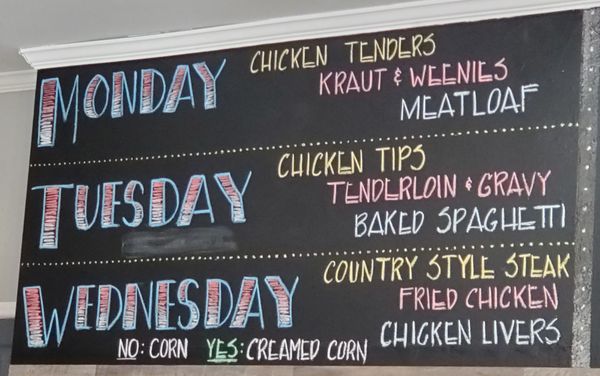 MONDAY
CHICKEN TENDERS
KRAUT & WEENIES
MEATLOAF
TUESDAY
CHICKEN TIPS
TENDERLOIN & GRAVY
BAKED SPAGHETTI
WEDNESDAY
COUNTRY STYLE STEAK
FRIED CHICKEN
CHICKEN LIVERS
NO: CORN YES: CREAMED CORN